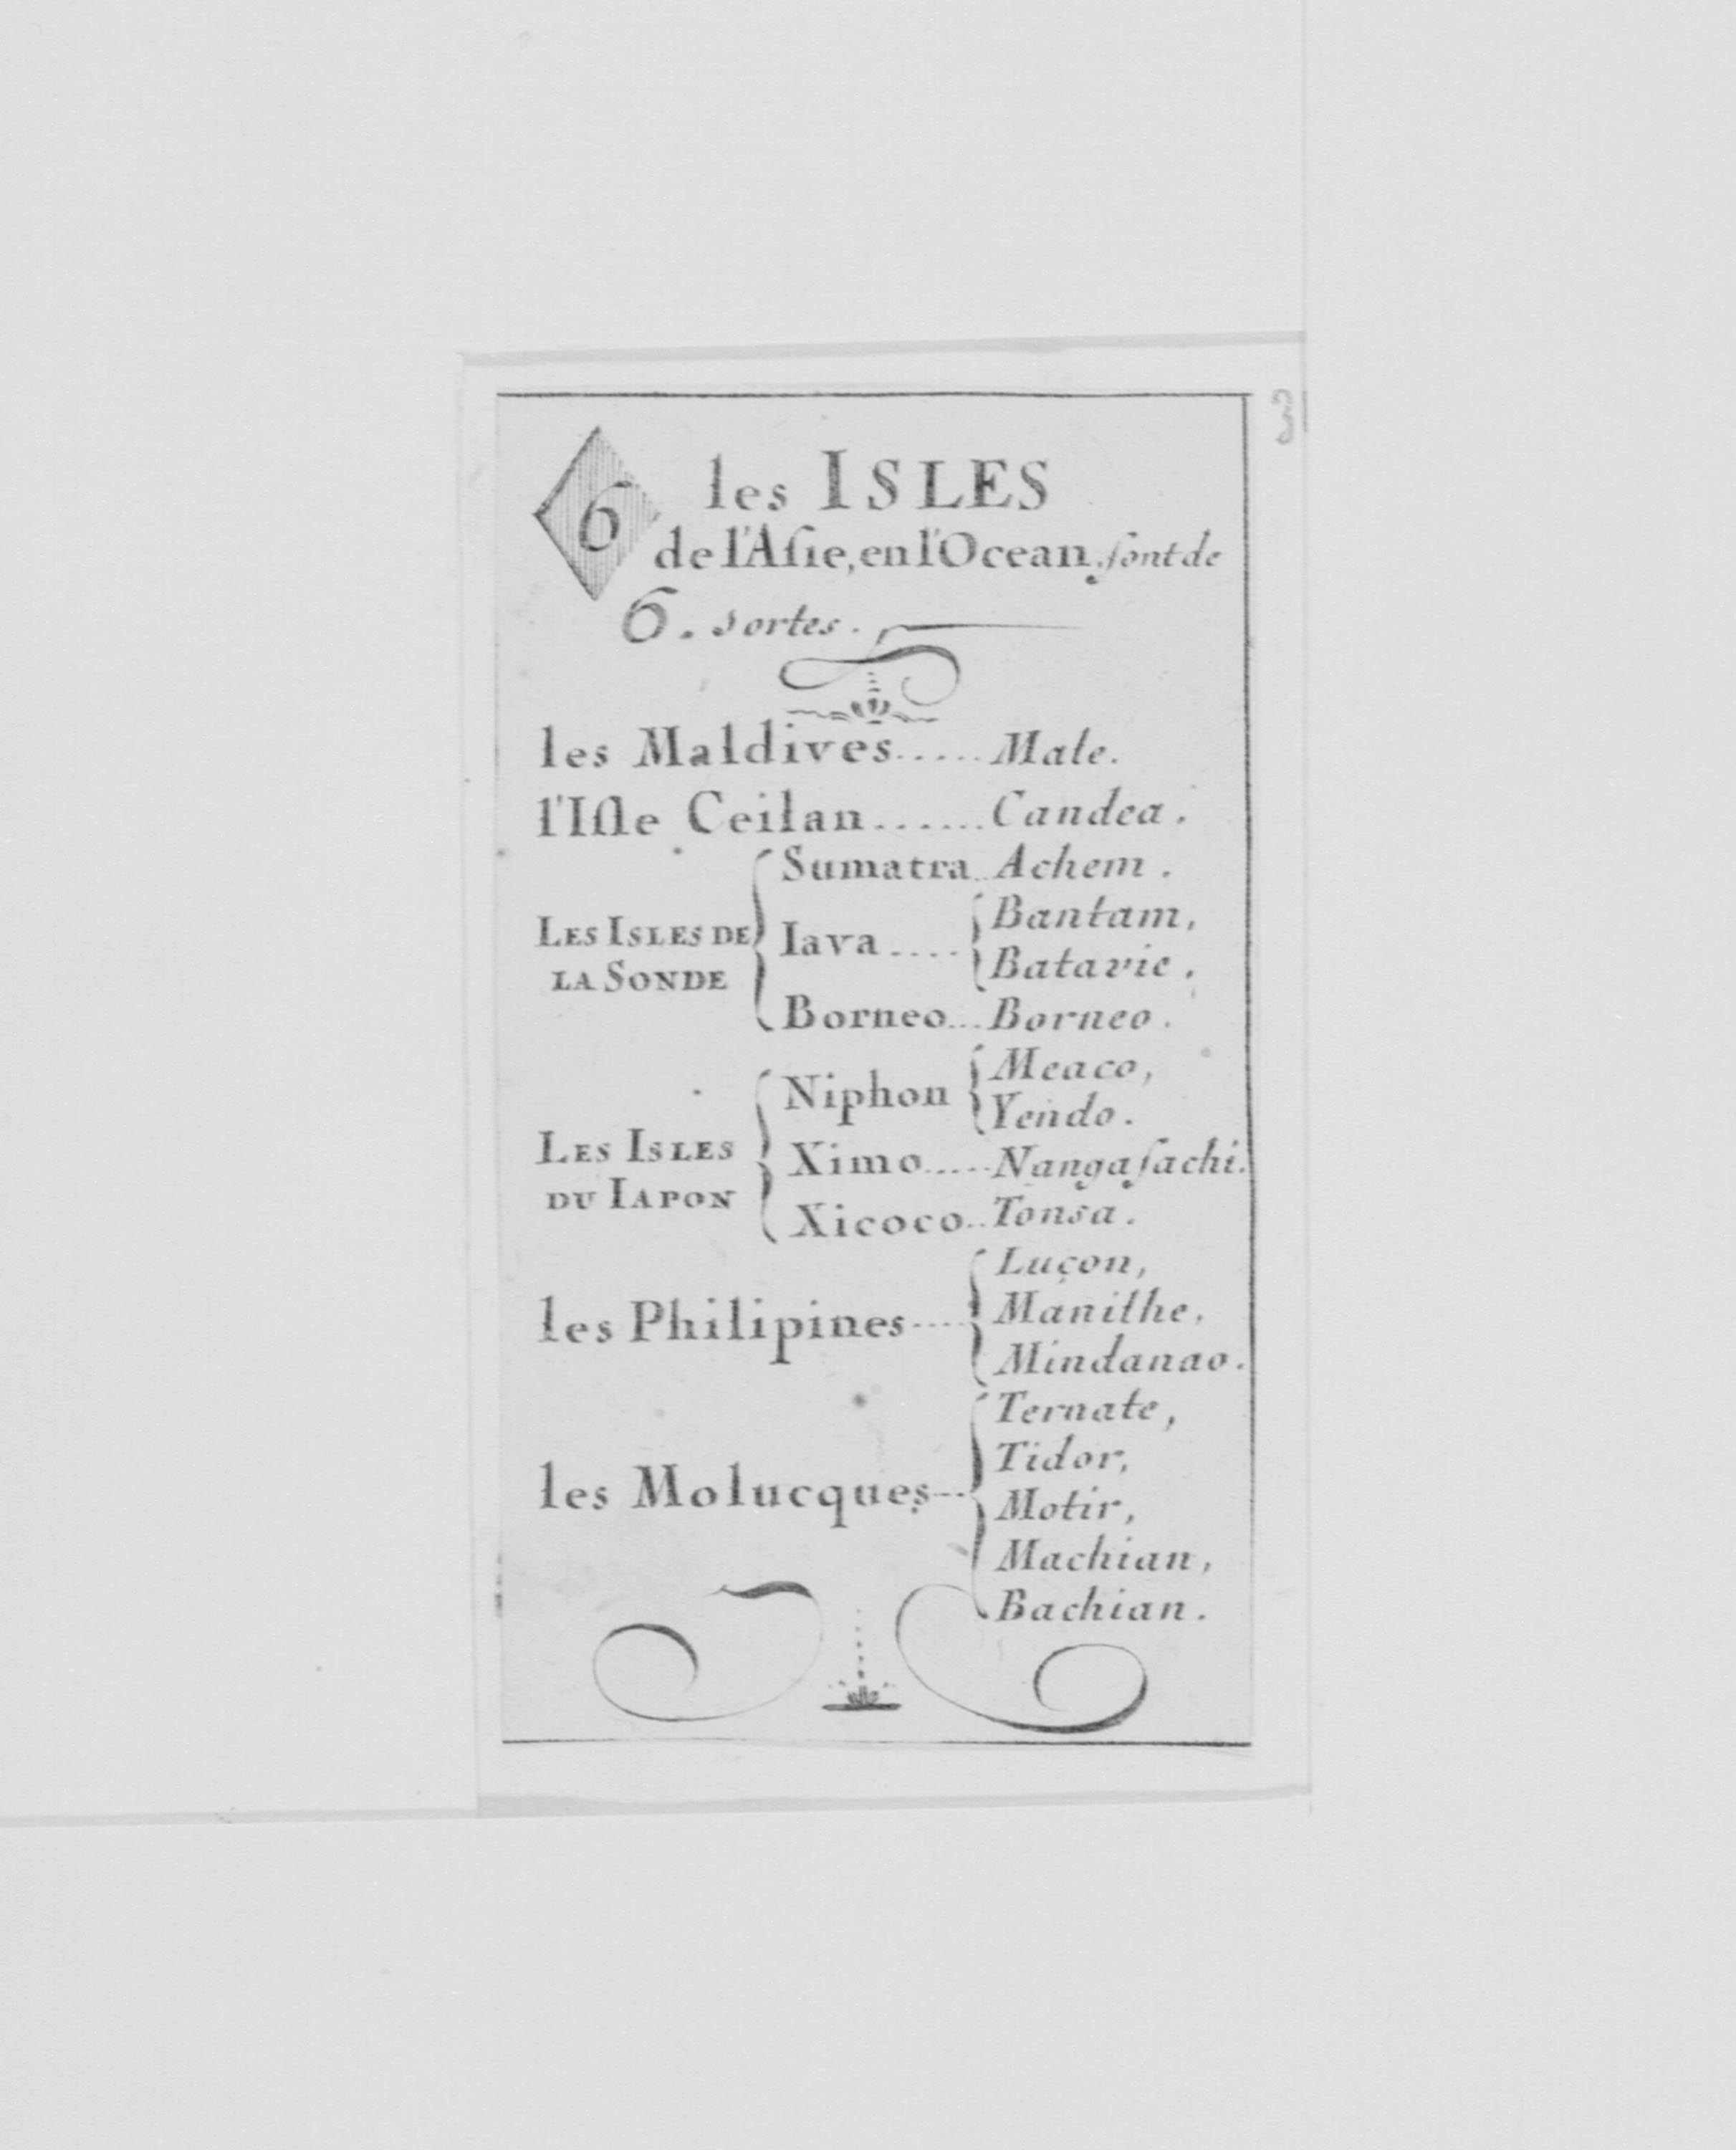 6 les ISLES
de l'Aſie, en l'Ocean, ſont de
6. sortes.
les Maldives..... Male.
l'Iſle Ceilan...... Candea.
LES ISLES DE LA SONDE
Sumatra.. Achem.
Iava.... Bantam,
Batavie.
Borneo... Borneo.
LES ISLES DU IAPON
Niphon Meaco,
Yendo.
Ximo..... Nangaſachi.
Xicoco.. Tonsa.
les Philipines.... Luçon,
Manilhe,
Mindanao.
les Molucques... Ternate,
Tidor,
Motir,
Machian,
Bachian.